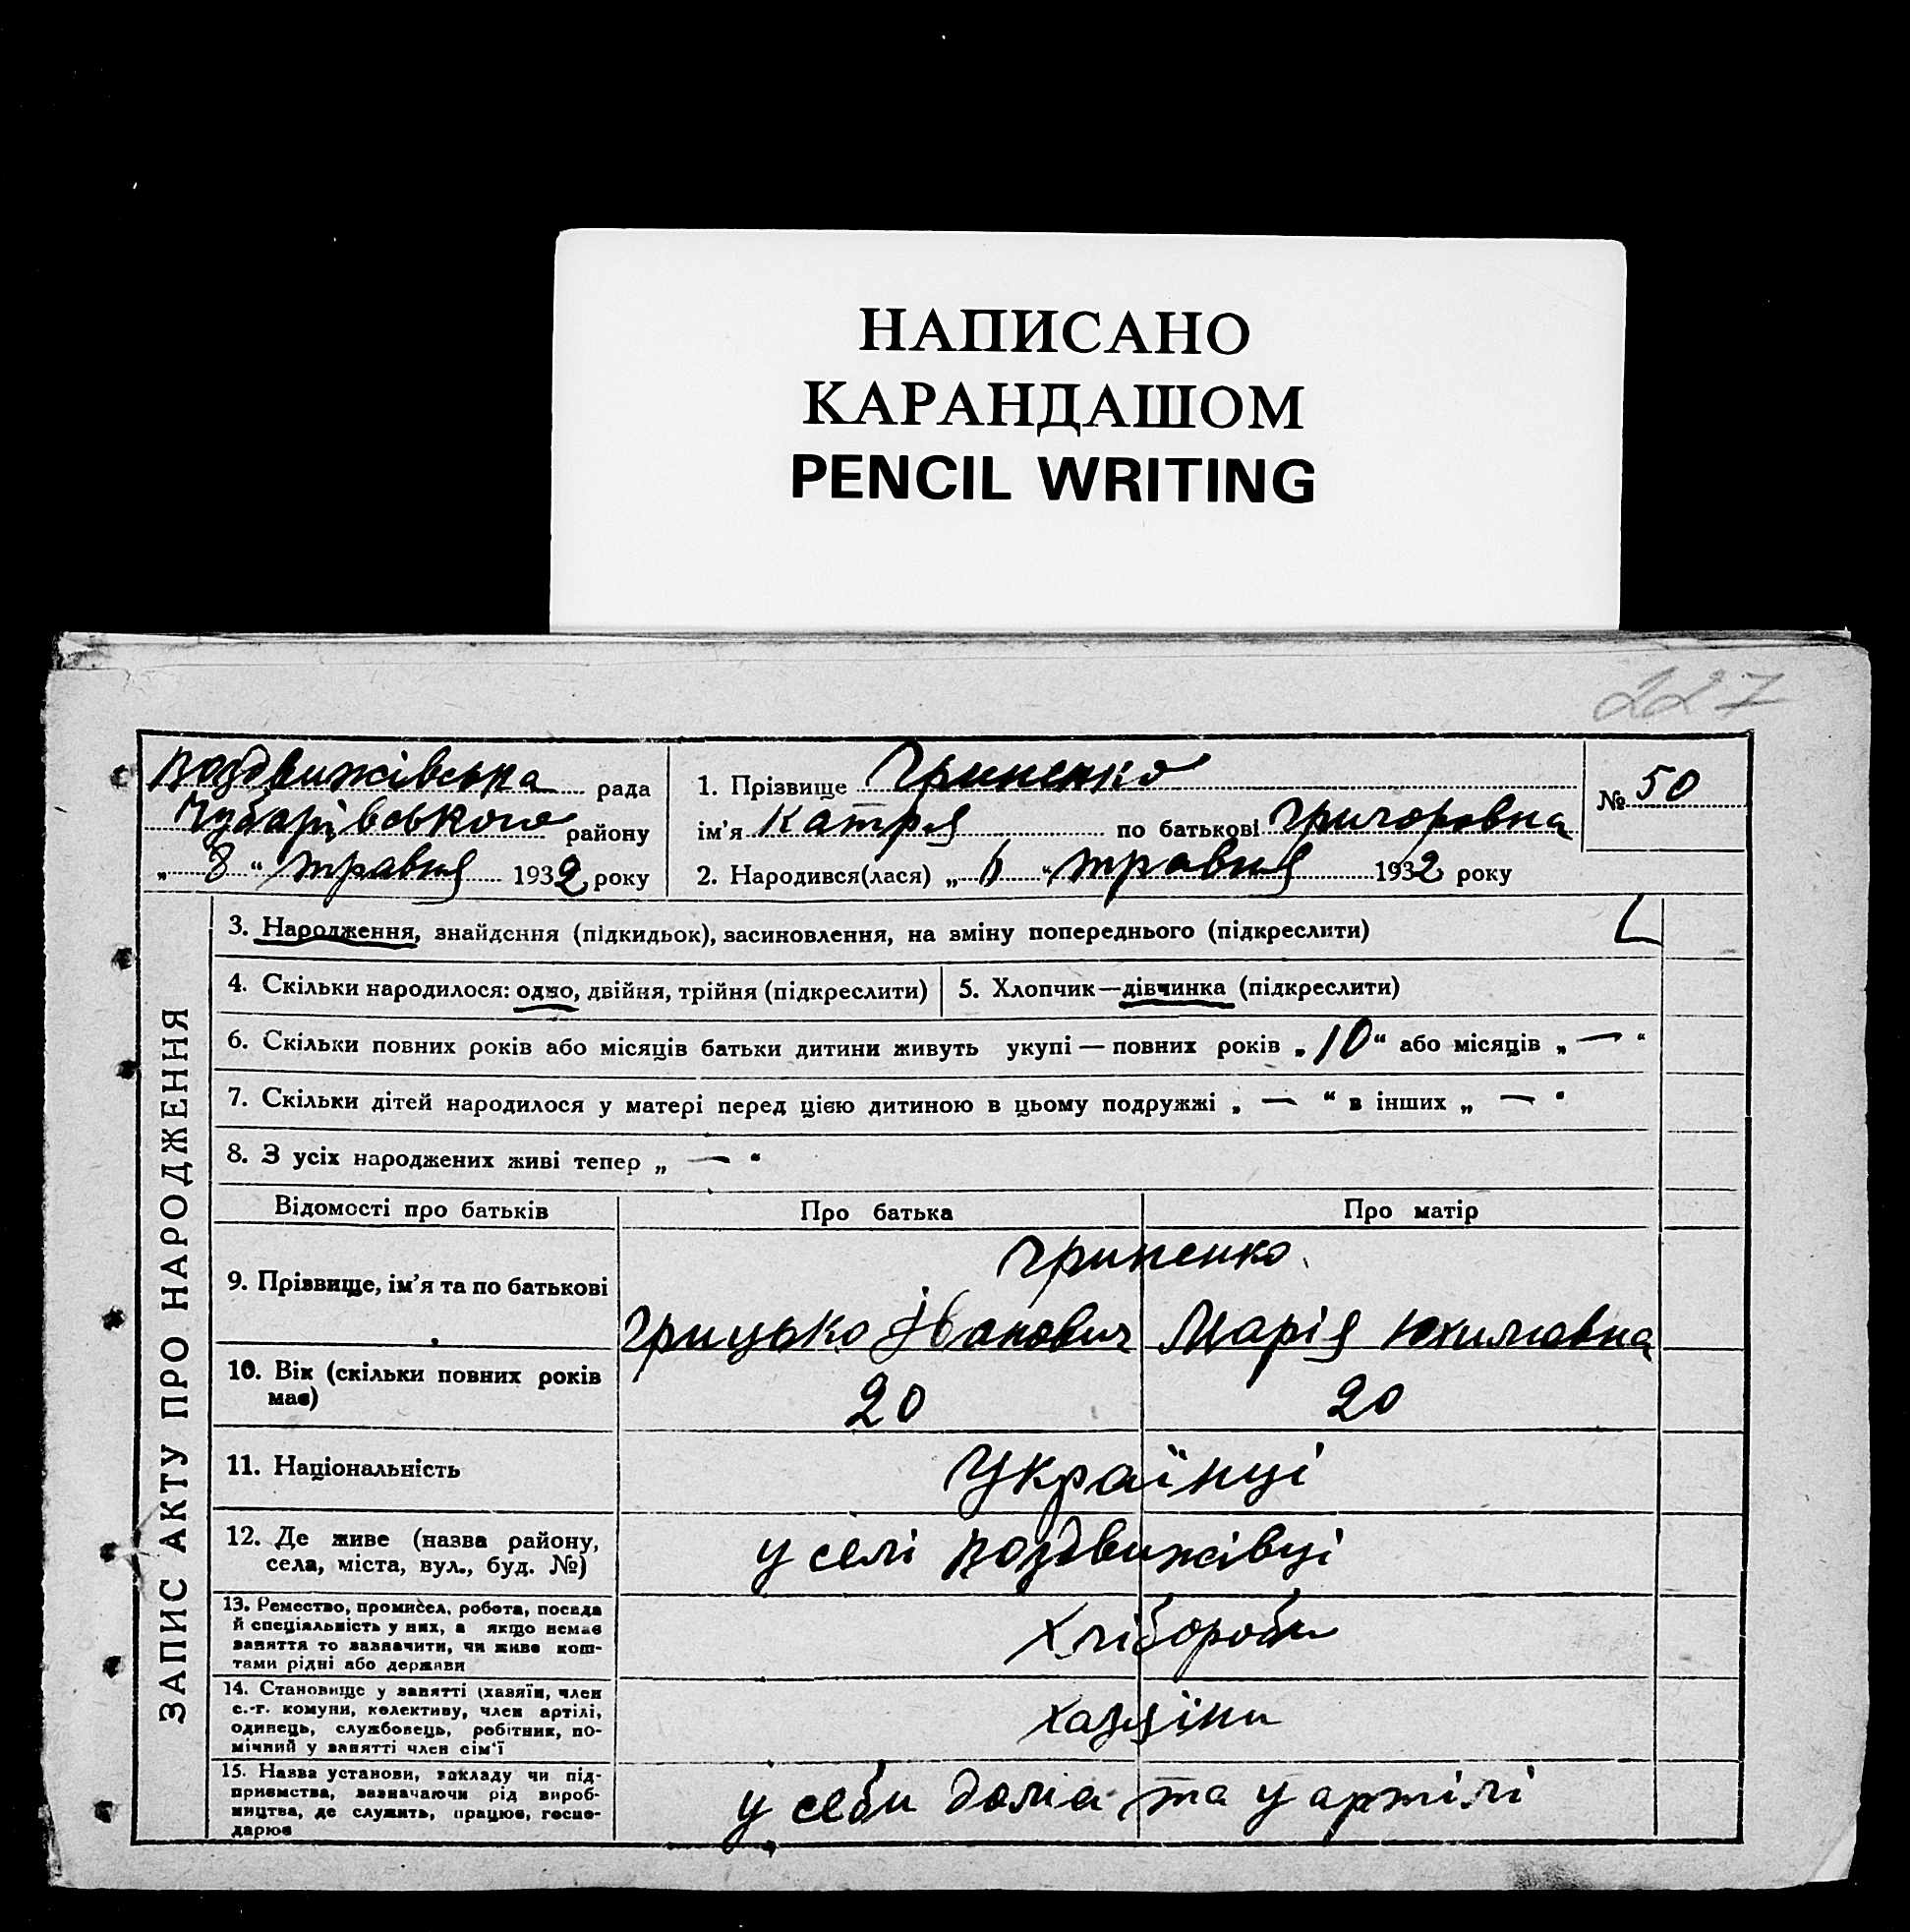 НАПИСАНО
КАРАНДАШОМ
PENCIL WRITING
227
Воздвижівська рада
Чубарівського району
„ 8 “ травня 1932 року
1. Прізвище Гриненко
ім’я Катря по батькові Григоровна
2. Народився(лася) „ 6 “ травня 1932 року
№ 50
ЗАПИС АКТУ ПРО НАРОДЖЕННЯ
3. Народження, знайдення (підкидьок), засиновлення, на зміну попереднього (підкреслити)
4. Скільки народилося: одно, двійня, трійня (підкреслити)
5. Хлопчик—дівчинка (підкреслити)
6. Скільки повних років або місяців батьки дитини живуть укупі — повних років „ 10 “ або місяців „ — “
7. Скільки дітей народилося у матері перед цією дитиною в цьому подружжі „ — “ в інших „ — “
8. З усіх народжених живі тепер „ — “
Відомості про батьків Про батька Про матір
9. Прізвище, ім’я та по батькові
Гриненко
Грицько Іванович Марія Юхимовна
10. Вік (скільки повних років
має)
20 20
11. Національність
Українці
12. Де живе (назва району,
села, міста, вул., буд. №)
у селі Воздвижівці
13. Ремество, промисел, робота, посада
й спеціяльність у них, а якщо немає
заняття то зазначити, чи живе кош-
тами рідні або держави
Хлібороби
14. Становище у занятті (хазяїн, член
с.-г. комуни, колективу, член артілі,
одинець, службовець, робітник, по-
мічний у занятті член сім’ї
хазяїни
15. Назва установи, закладу чи під-
приємства, зазначаючи рід вироб-
ництва, де служить, працює, госпо-
дарює
у себи дома та у артілі